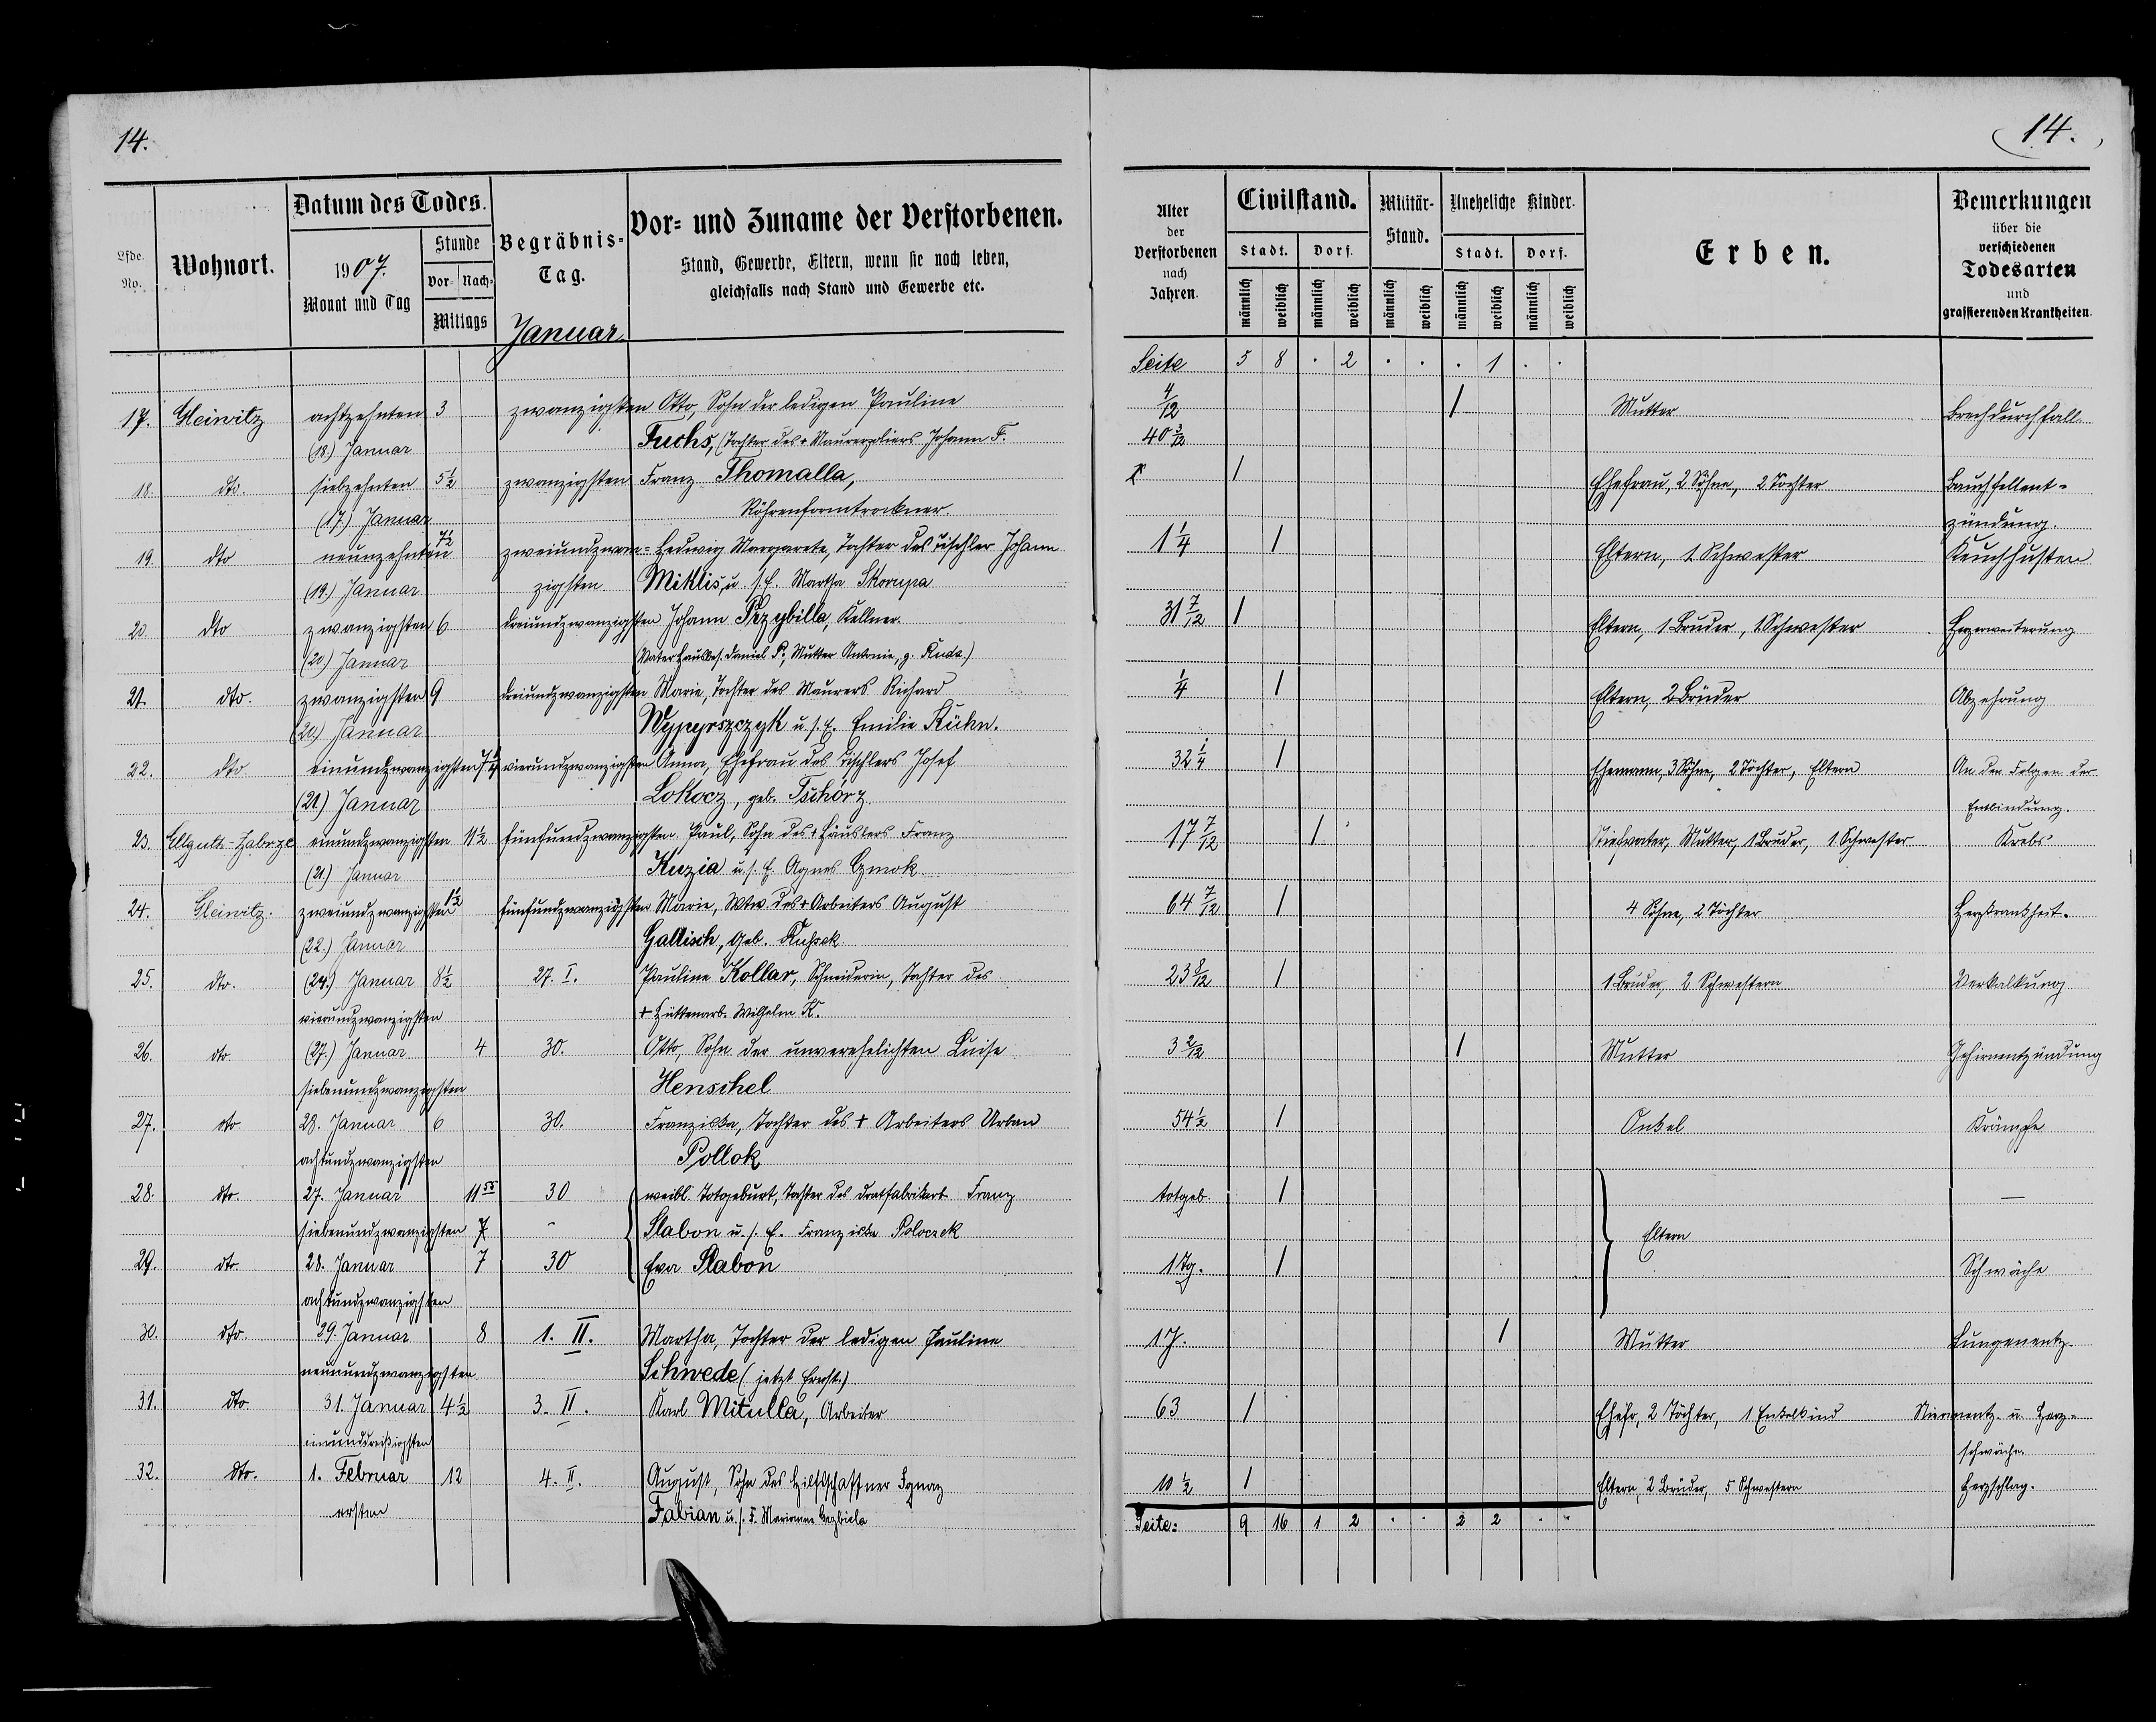 14.
14.
Lfde. No.
Wohnort.
Datum des Todes.
1907.
Monat und Tag
Stunde
Vor- Nach-
Mittags
Begräbnis-
Tag.
Januar.
Vor- und Zuname der Verstorbenen.
Stand, Gewerbe, Eltern, wenn sie noch leben,
gleichfalls nach Stand und Gewerbe etc.
Alter
der
Verstorbenen
nach
Jahren.
Civilstand.
Stadt. Dorf.
männlich weiblich männlich weiblich
Militär-
Stand.
männlich weiblich
Uneheliche Kinder.
Stadt. Dorf.
männlich weiblich männlich weiblich
Erben.
Bemerkungen
über die
verschiedenen
Todesarten
und
grassierenden Krankheiten.
Seite 5 8 . 2 . . . 1 . .
17. Gleiwitz achtzehnten 3 zwanzigsten Otto, Sohn der ledigen Pauline 4/12 1 Mutter Brechdurchfall.
(18.) Januar Fuchs, (Tochter des + Maurerpoliers Johann F. 40 3/12
18. dto. siebzehnten 5 1/2 zwanzigsten Franz Thomalla, 1 Ehefrau, 2 Söhne, 2 Töchter Bauchfellent-
(17.) Januar Röhrenformtrockner. zündung.
19. dto neunzehnten 7 1/2 zweiundzwan- Hedwig Margarete, Tochter des Tischler Johann 1 1/4 1 Eltern, 1 Schwester Keuchhusten
(19.) Januar zigsten Miklis, u. s. E. Martha Skorupa
20 dto zwanzigsten 6 dreiundzwanzigsten Johann Przybilla, Kellner. 31 7/12 1 Eltern, 1 Bruder, 1 Schwester Herzerweiterung
(20.) Januar (Vater Hausbes. Daniel P., Mutter Antonie, g. Ruda.)
21. dto. zwanzigsten 9 dreiundzwanzigsten Marie, Tochter des Maurers Richard 1/4 1 Eltern, 2 Brüder Abzehrung
(20.) Januar Wypyrszczyk u. s. E. Emilie Kühn.
22. dto einundzwanzigsten 7 1/4 vierundzwanzigsten Anna, Ehefrau des Tischlers Josef 32 1/4 1 Ehemann, 3 Söhne, 2 Töchter, Eltern An den Folgen der
(21.) Januar Lokocz, geb. Tschörz Entbindung.
23. Ellguth-Zabrze einundzwanzigsten 11 1/2 fünfundzwanzigsten Paul, Sohn des + Häuslers Franz 17 7/12 1 Stiefvater, Mutter, 1 Bruder, 1 Schwester Krebs
(21.) Januar Kuzia u. s. E. Agnes Czmok
24. Gleiwitz. zweiundzwanzigsten 1 1/2 fünfundzwanzigsten Marie, Wtw. des + Arbeiters August 64 7/12 1 4 Söhne, 2 Töchter Herzkrankheit.
(22.) Januar Gallisch, geb.
25. dto. (24.) Januar 8 1/2 27. I. Pauline Kollar, Schneiderin, Tochter des 23 8/12 1 1 Bruder, 2 Schwestern Verkalkung
vierundzwanzigsten + Hüttenarb. Wilhelm K.
26. dto. (27.) Januar 4 30. Otto, Sohn der unverehelichten Luise 3 2/12 1 Mutter Gehirnentzündung
siebenundzwanzigsten Henschel
27. dto 28. Januar 6 30. Franziska, Tochter des + Arbeiters Urban 54 1/2 1 Onkel Krämpfe
achtundzwanzigsten Pollok
28. dto. 27. Januar 11 55 30 weibl. Totgeburt, Tochter des Dratfabrikarb. Franz totgeb. 1 —
siebenundzwanzigsten Slabon u. s. E. Franziska Poloczek Eltern
29. dto. 28. Januar 7 30 Eva Slabon 1 Tg. 1 Schwäche
achtundzwanzigsten
30. dto. 29. Januar 8 1. II. Martha, Tochter der ledigen Pauline 1 J. 1 Mutter Lungenentz.
neunundzwanzigsten Schwede (jetzt Ernst.)
31. dto 31. Januar 4 1/2 3. II. Karl Mitulla, Arbeiter 63 1 Ehefr, 2 Töchter, 1 Enkelkind Nierenentz. u. Herz-
einunddreißigsten schwäche.
32. dto. 1. Februar 12 4. II. August, Sohn des Hilfsschaffner Ignaz 10 1/2 1 Eltern, 2 Brüder, 5 Schwestern Herzschlag.
ersten Fabian u. s. F. Marianna
Seite: 9 16 1 2 . . 2 2 . .